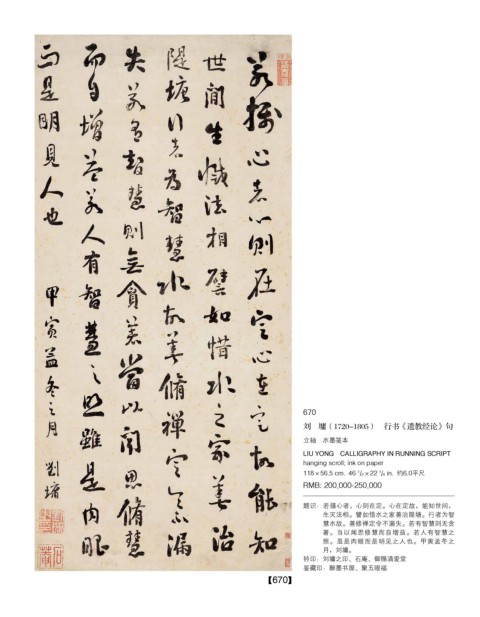 若攝心者心則在定心在定故能知
世間生滅法相譬如惜水之家善治
隄塘行者為智慧水故善脩禪定令不漏
失若有智慧則無貪著當以聞思脩慧
而自增益若人有智慧之照雖是肉眼
而是明見人也 甲寅孟冬之月 劉墉
【670】
670
刘 墉（1720-1805） 行书《遗教经论》句
立轴 水墨笺本
LIU YONG CALLIGRAPHY IN RUNNING SCRIPT
hanging scroll; ink on paper
118×56.5 cm. 46 1/2×22 1/4 in. 约6.0平尺
RMB: 200,000-250,000
题识：若摄心者，心则在定。心在定故，能知世间，
生灭法相。譬如惜水之家善治隄塘。行者为智
慧水故。善修禅定令不漏失。若有智慧则无贪
著。当以闻思修慧而自增益。若人有智慧之
照。虽是肉眼而是明见人也。甲寅孟冬之
月，刘墉。
钤印：刘墉之印、石庵、御赐清爱堂
鉴藏印：翰墨书屋、聚五眼福